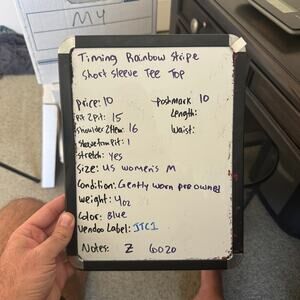 MY
Timing Rainbow Stripe
Short sleeve Tee Top
Price: 10
Poshmark 10
Pit 2 Pit: 15
Length:
Shoulder 2 Hem: 16
Waist:
Sleeve from Pit: 1
Stretch: yes
Size: US women's M
Condition: Gently worn pre owned
Weight: 4oz
Color: Blue
Vendoo Label: JTC1
Notes: Z 6020